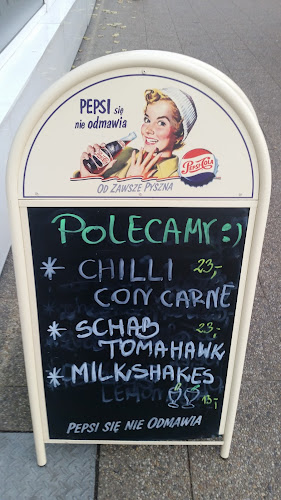 PEPSI się
nie odmawia
Pepsi-Cola
OD ZAWSZE PYSZNA
POLECAMY :)
* CHILLI 23,-
CON CARNE
* SCHAB 23,-
TOMAHAWK
* MILKSHAKES
LEMON
13,-
PEPSI SIĘ NIE ODMAWIA